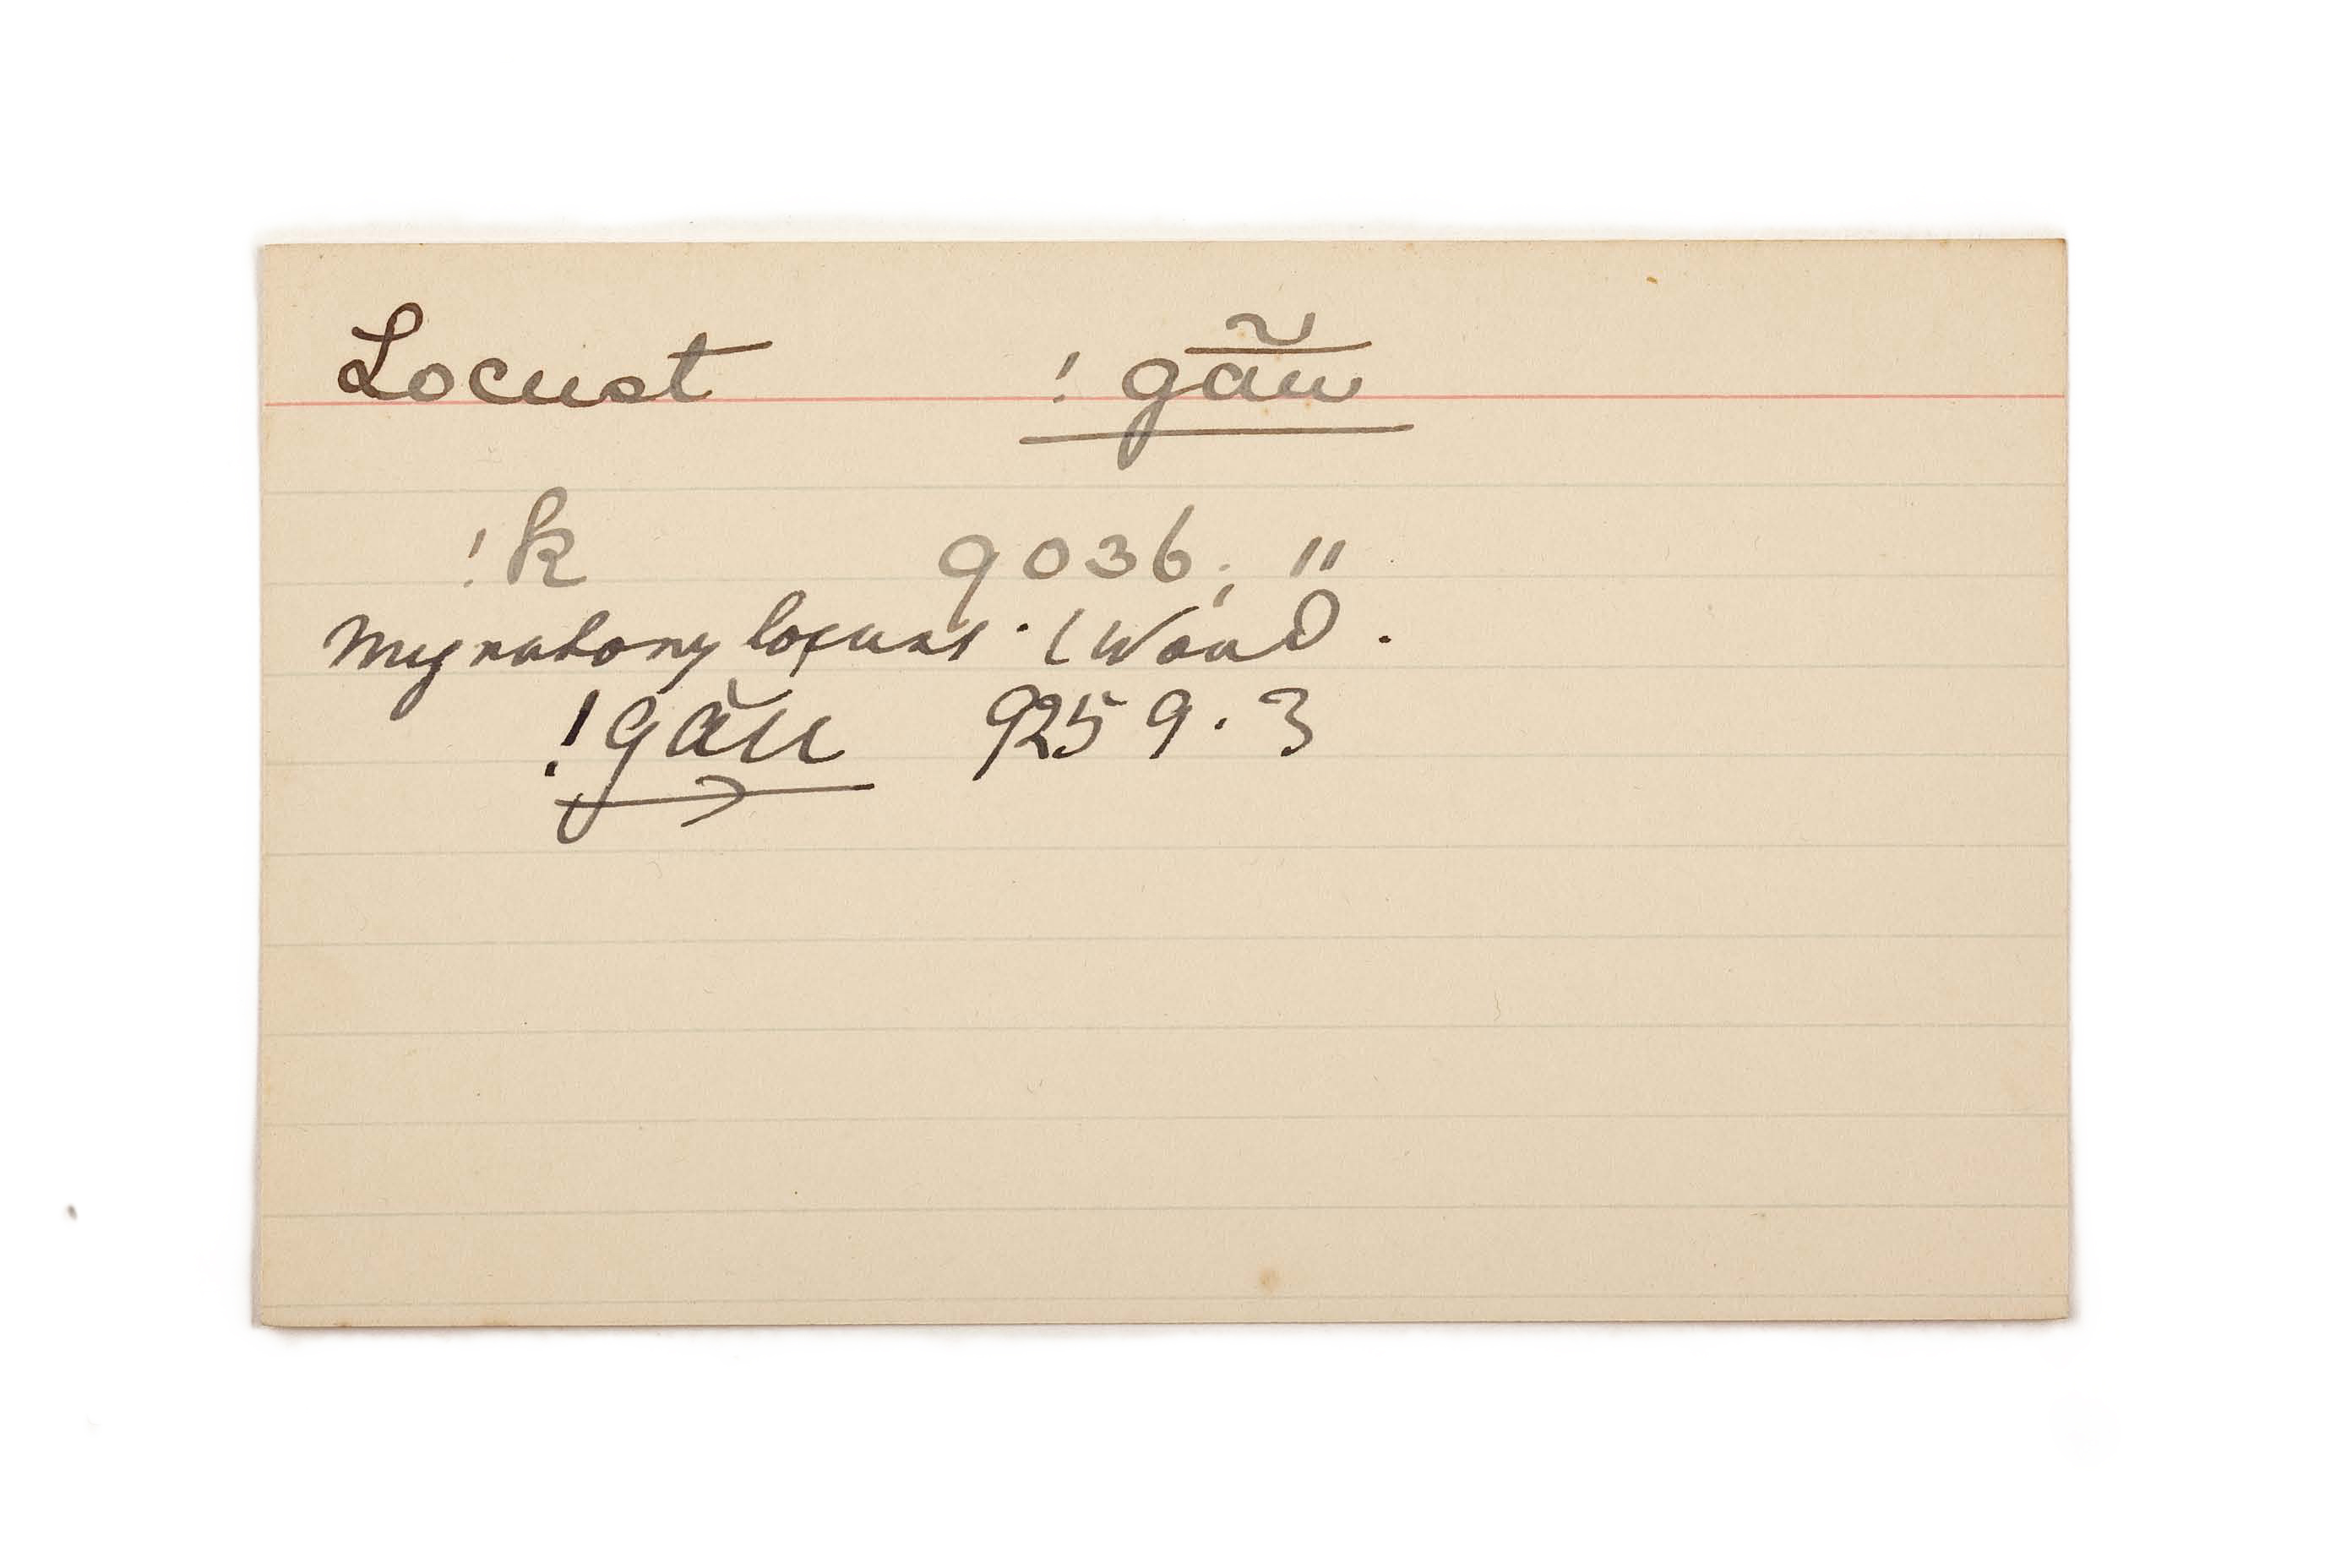 Locust ! gãu
!k 9036; "
Migratory locust. (Wood.
!gău 9259.3